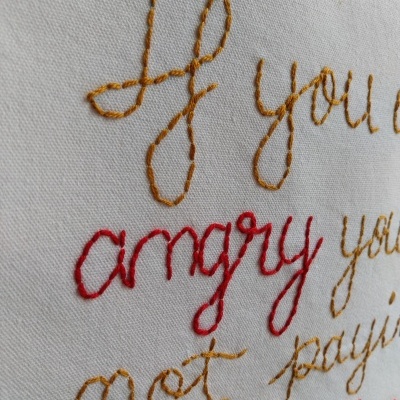 If you
angry you
not payi